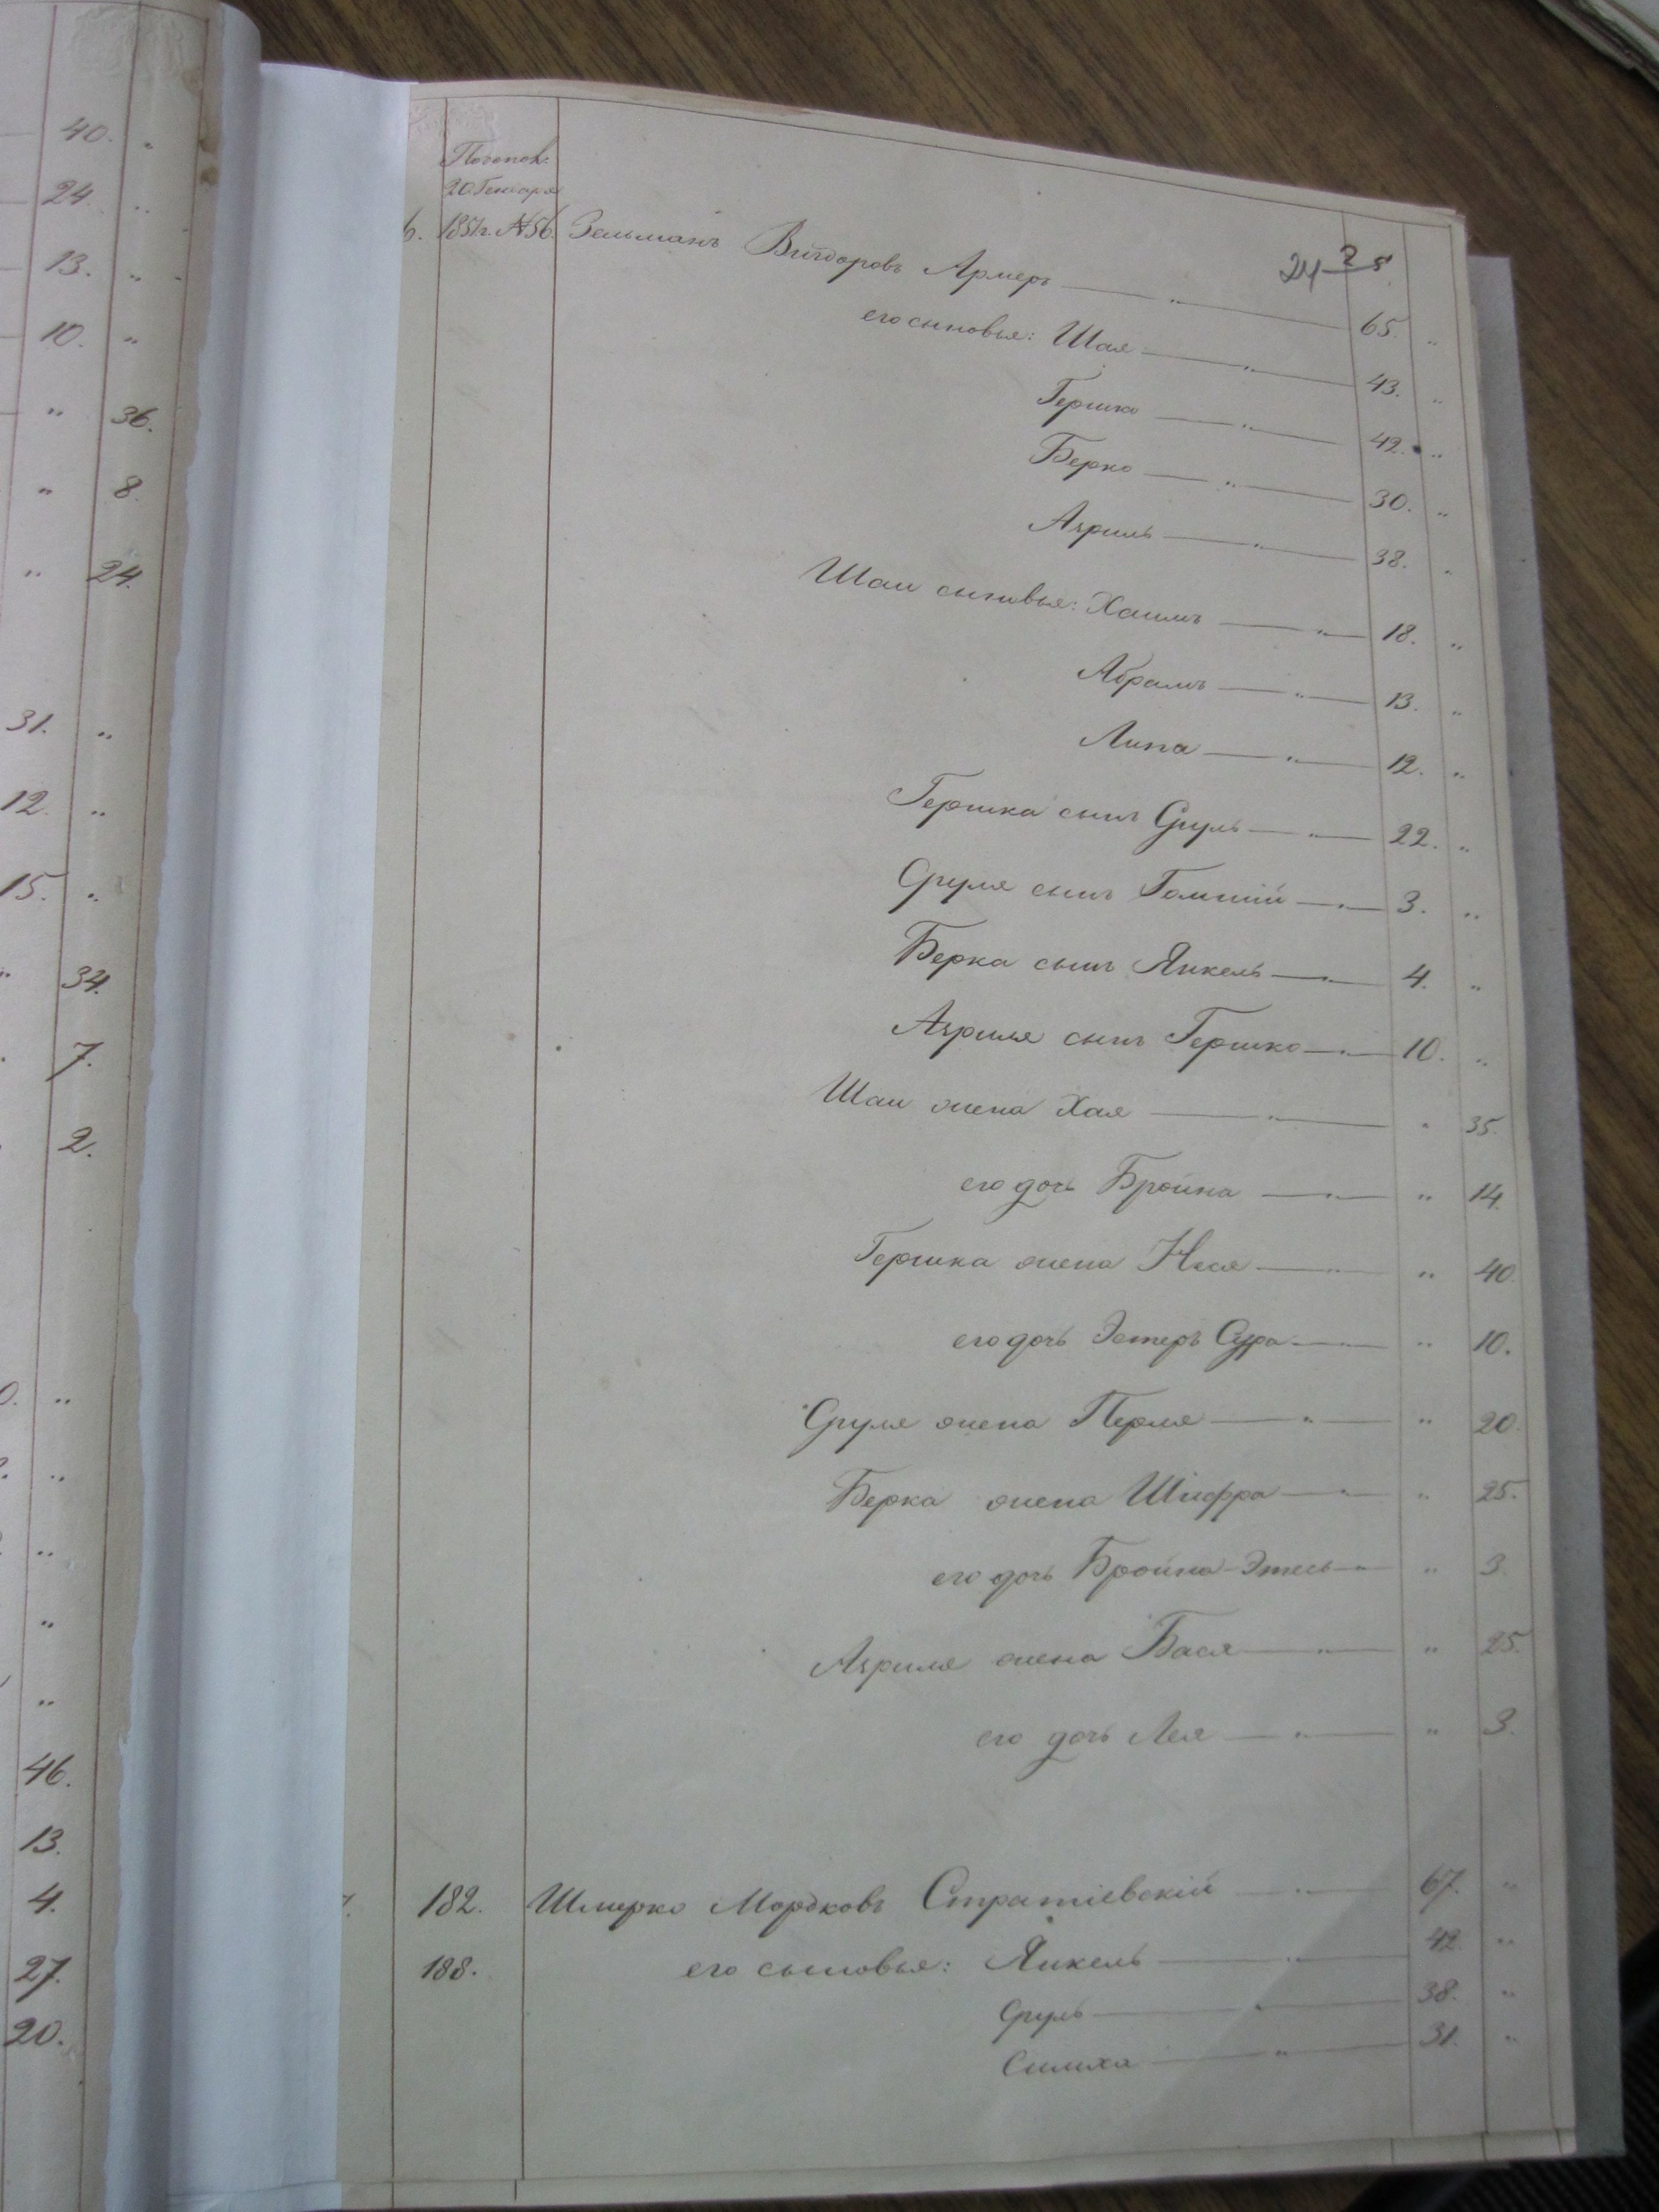 40. "
24. "
13. "
10. "
" 36.
" 8.
" 24.
31. "
12. "
15. "
" 34.
7.
2.
46.
13.
4.
27.
20.
24 25
20 Генваря
6. 1851г. №56. Зельманъ Вигдоровъ Армеръ — " — 65. "
его сыновья: Шая — " — 43. "
Гершко — " — 42. "
Берко — " — 30. "
Азриль — " — 38. "
Шаи сыновья: Хаимъ — " — 18. "
Абрамъ — " — 13. "
Липа — " — 12. "
Гершка сынъ Сруль — " — 22. "
Сруля сынъ — " — 3. "
Берка сынъ Янкель — " — 4. "
Азриля сынъ Гершко — " — 10. "
Шаи жена Хая — " — " 35.
его дочь Бройна — " — " 14.
Гершка жена — " — " 40.
его дочь Эстеръ Сура — " — " 10.
Сруля жена Перля — " — " 20.
Берка жена Шифра — " — " 25.
его дочь Бройна-Этель — " — " 3.
Азриля жена Бася — " — " 25.
его дочь Лея — " — " 3.
182. Шмерко Мордковъ Стратіевскій — " — 67. "
188. его сыновья: Янкель — " — 42. "
Сруль — " — 38. "
Симха — " — 31. "